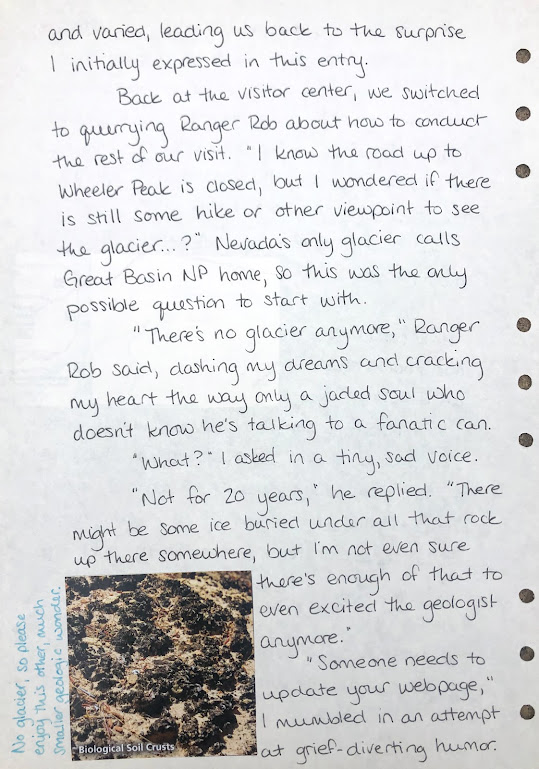 and varied, leading us back to the surprise
I initially expressed in this entry.
Back at the visitor center, we switched
to querrying Ranger Rob about how to conduct
the rest of our visit. "I know the road up to
Wheeler Peak is closed, but I wondered if there
is still some hike or other viewpoint to see
the glacier...?" Nevada's only glacier calls
Great Basin NP home, so this was the only
possible question to start with.
"There's no glacier anymore," Ranger
Rob said, dashing my dreams and cracking
my heart the way only a jaded soul who
doesn't know he's talking to a fanatic can.
"What?" I asked in a tiny, sad voice.
"Not for 20 years," he replied. "There
might be some ice buried under all that rock
up there somewhere, but I'm not even sure
there's enough of that to
even excited the geologist
anymore."
"Someone needs to
update your webpage,"
I mumbled in an attempt
at grief-diverting humor.
No glacier, so please
enjoy this other, much
smaller geologic wonder.
Biological Soil Crusts